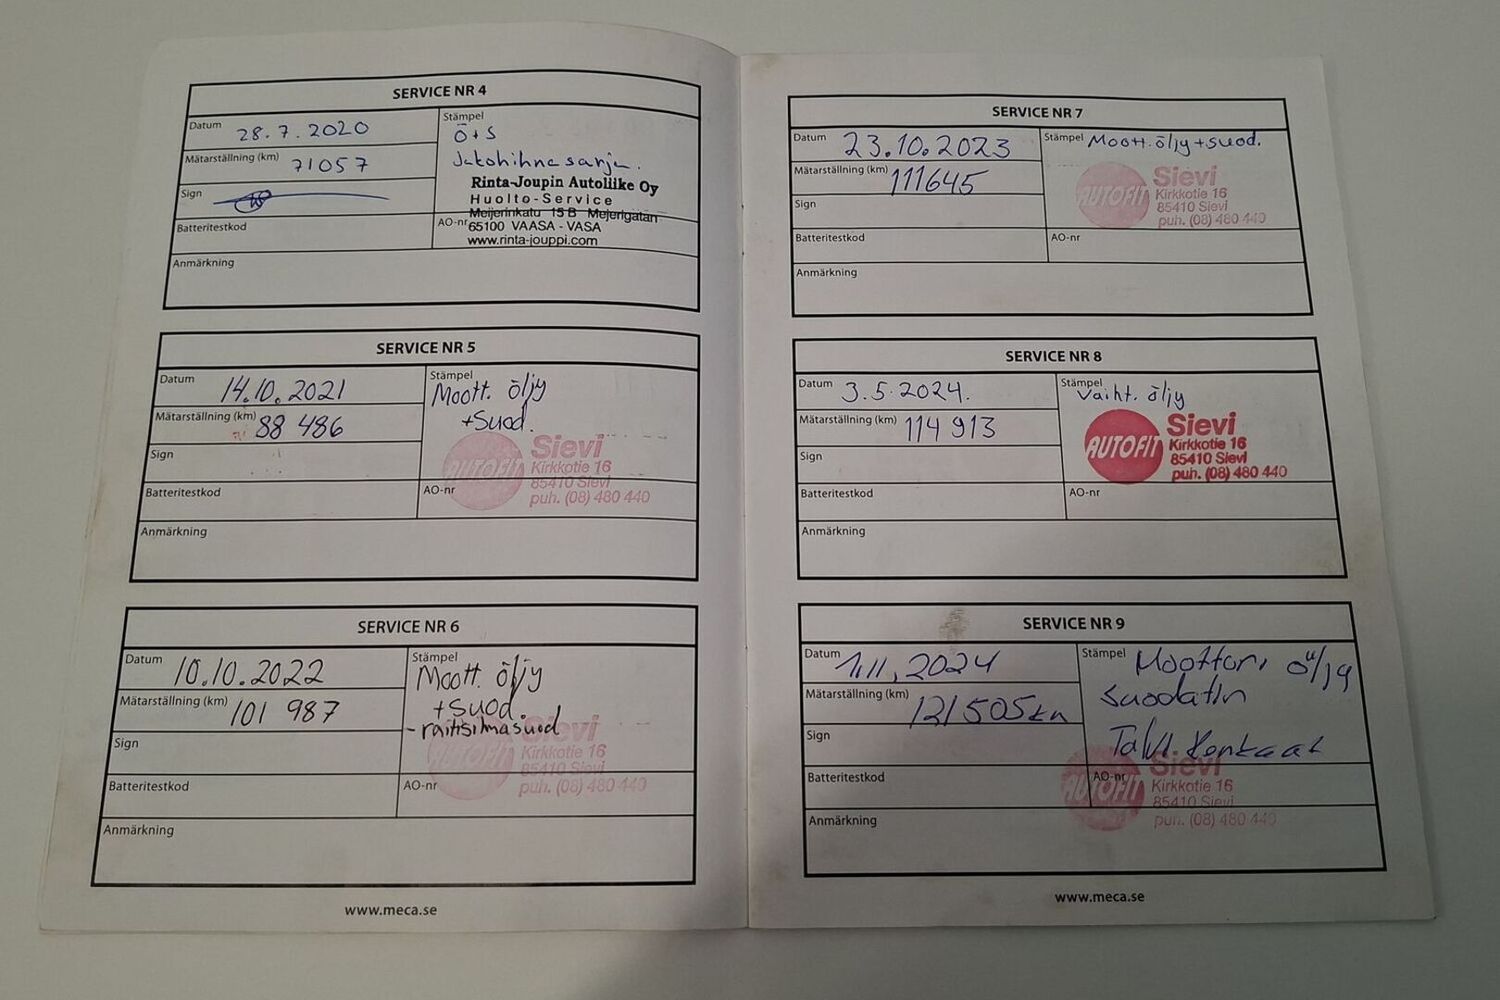 SERVICE NR 4
Datum 28.7.2020
Stämpel
Ö+S
Mätarställning (km) 71057
Jakohihnasarja.
Sign
Rinta-Joupin Autoliike Oy
Huolto-Service
Meijerinkatu 15 B Mejerigatan
Batteritestkod
AO-nr 65100 VAASA - VASA
www.rinta-jouppi.com
Anmärkning
SERVICE NR 5
Datum 14.10.2021
Stämpel
Moott. öljy
Mätarställning (km) 88 486
+Suod.
Sign
AUTOFIT Sievi
Kirkkotie 16
85410 Sievi
Batteritestkod
AO-nr
puh. (08) 480 440
Anmärkning
SERVICE NR 6
Datum 10.10.2022
Stämpel
Moott. öljy
Mätarställning (km) 101 987
+suod.
- raitisilmasuod
Sign
AUTOFIT Sievi
Kirkkotie 16
85410 Sievi
Batteritestkod
AO-nr
puh. (08) 480 440
Anmärkning
www.meca.se
SERVICE NR 7
Datum 23.10.2023
Stämpel Moott. öljy+suod.
Mätarställning (km) 111645
Sign
AUTOFIT Sievi
Kirkkotie 16
85410 Sievi
puh. (08) 480 440
Batteritestkod
AO-nr
Anmärkning
SERVICE NR 8
Datum 3.5.2024.
Stämpel
Vaiht. öljy
Mätarställning (km) 114 913
Sign
AUTOFIT Sievi
Kirkkotie 16
85410 Sievi
puh. (08) 480 440
Batteritestkod
AO-nr
Anmärkning
SERVICE NR 9
Datum 1.11, 2024
Stämpel Moottori öljy
Mätarställning (km) 121505km
suodatin
Sign
Talvi Renkaat
AUTOFIT Sievi
Batteritestkod
AO-nr
Kirkkotie 16
85410 Sievi
puh. (08) 480 440
Anmärkning
www.meca.se